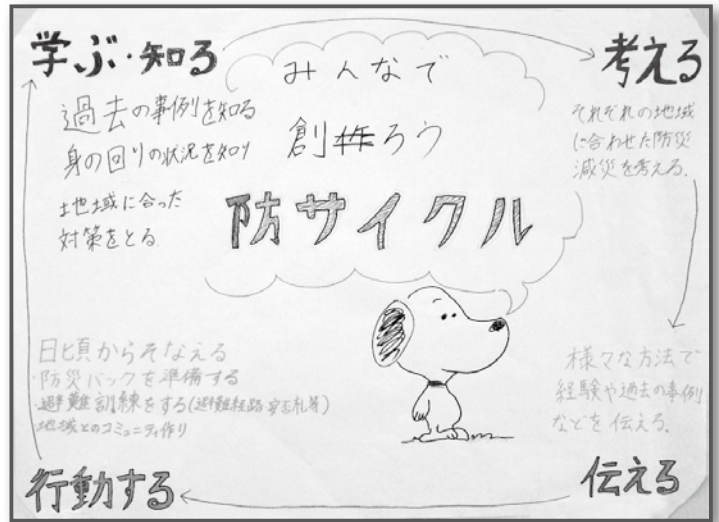 学ぶ・知る
過去の事例を知る
身の回りの状況を知り
地域に合った
対策をとる
みんなで
創ろう
防サイクル
考える
それぞれの地域
に合わせた防災
減災を考える。
様々な方法で
経験や過去の事例
などを伝える。
伝える
日頃からそなえる
・防災バックを準備する
・避難訓練をする(避難経路 安否札等)
地域とのコミュニティ作り
行動する